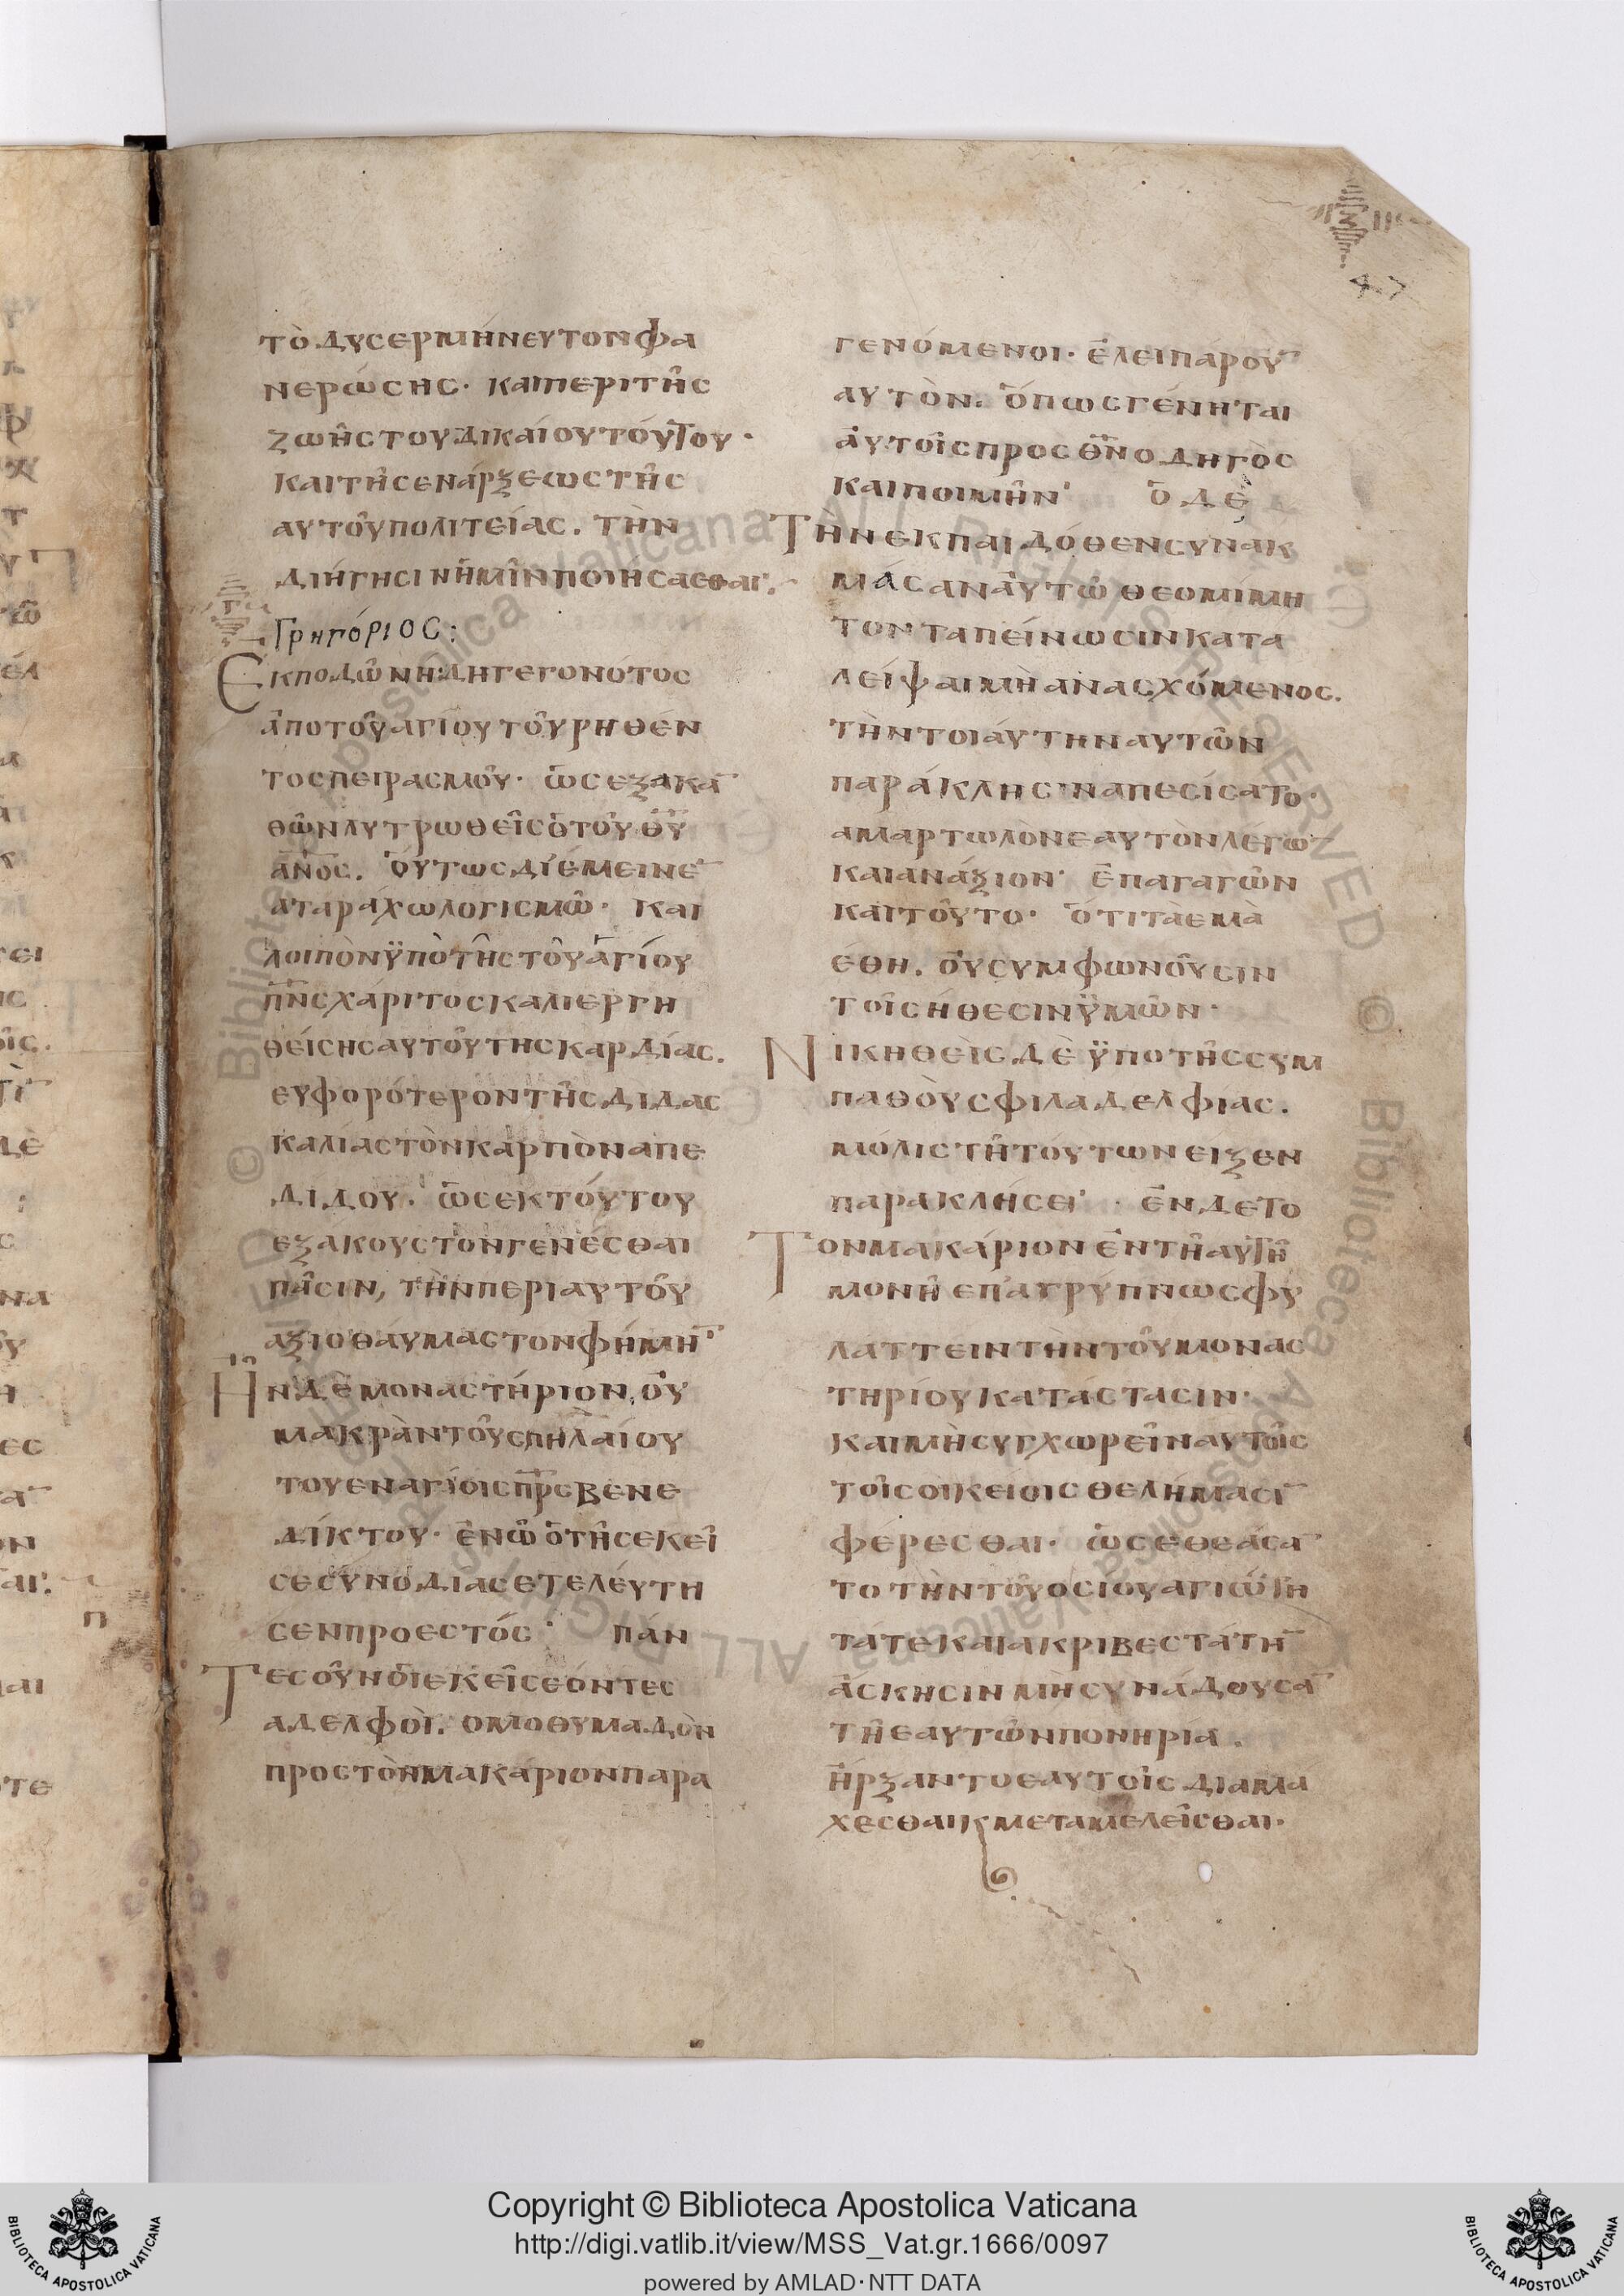 τὸ δυσερμήνευτον φα
νερώσης· και περι τῆς
ζωῆς του δικαίου τούτου·
και τῆς ενάρξεως τῆς
αυτοῦ πολιτείας. τὴν
διήγησιν ἡμῖν ποιήσασθαι:
Γ
Γρηγόριος:
Εκποδὼν ἤδη γεγονότος
ἀπο τοῦ αγίου τοῦ ρηθέν
τος πειρασμοῦ· ὡς εξ ακα̅
θῶν λυτρωθεῖς ὁ τοῦ θ̅υ̅
α̅ν̅ο̅ς̅. ὅυτως διέμεινε̅
αταράχω λογισμῶ· και
λοιπὸν ϋπὸ τῆς τοῦ ἁγίου
π̅ν̅ς̅ χάριτος καλιεργη
θείσης αυτοῦ της καρδίας.
ευφορότερον τῆς διδας
καλίας τὸν καρπὸν απε
δίδου. ὡς εκ τούτου
εξάκουστον γενέσθαι
πᾶσιν, τὴν περι αυτοῦ
αξιοθάυμαστον φήμη̅
Ἦν δὲ μοναστήριον, οὐ
μακρὰν τοῦ σπηλαίου
του εν αγίοις π̅ρ̅ς̅ βενε
δίκτου· ἐν ὧ ὁ τῆς εκεῖ
σε συνοδίας ετελέυτη
σεν προεστός· πάν
Τες οῦν ὁι εκεῖσε όντες
αδελφοὶ. ομοθυμαδὸν
προς τὸν μακάριον παρα
47
γενόμενοι· ἐλειπάρου̅
αυτὸν. ὅπως γένηται
ἀυτοῖς προς θ̅ν̅ οδηγὸς
και ποιμὴν· ὁ δὲ
Τὴν εκ παιδόθεν συνακ
μάσαν ἀυτῶ θεομίμη
τον ταπείνωσιν κατα
λείψαι μὴ ανασχόμενος.
τὴν τοιάυτην αυτῶν
παράκλησιν απεσίσατο·
αμαρτωλὸν εαυτὸν λέγων
και ανάξιον· ἐπαγαγὼν
και τοῦτο· ὅτι τὰ εμὰ
έθη. οὐ συμφωνοῦσιν
τοῖς ήθεσιν ϋμῶν·
Νικηθεὶς δὲ ϋπο τῆς συμ
παθοὺς φιλαδελφιας.
μόλις τῆ τούτων είξεν
παρακλήσει· ἐν δε το
Τον μακάριον ἐν τῆ αυτῆ
μονῆ επ' αγρύπνως φυ
λάττειν τὴν τοῦ μονασ
τηρίου κατάστασιν·
και μὴ συγχωρεῖν αυτοῖς
τοῖς οικείοις θελήμασι̅
φέρεσθαι· ὡς εθεάσα̅
το τὴν τοῦ οσιου αγιωτη
τάτε και ακριβεστάτη̅
ἀσκησιν μὴ συνάδουσα̅
τῆ εαυτῶν πονηρία.
ἤρξαντο εαυτοῖς διαμα
χεσθαι κ μεταμελεῖσθαι·
Copyright © Biblioteca Apostolica Vaticana
http://digi.vatlib.it/view/MSS_Vat.gr.1666/0097
powered by AMLAD·NTT DATA
BIBLIOTECA APOSTOLICA VATICANA
BIBLIOTECA APOSTOLICA VATICANA